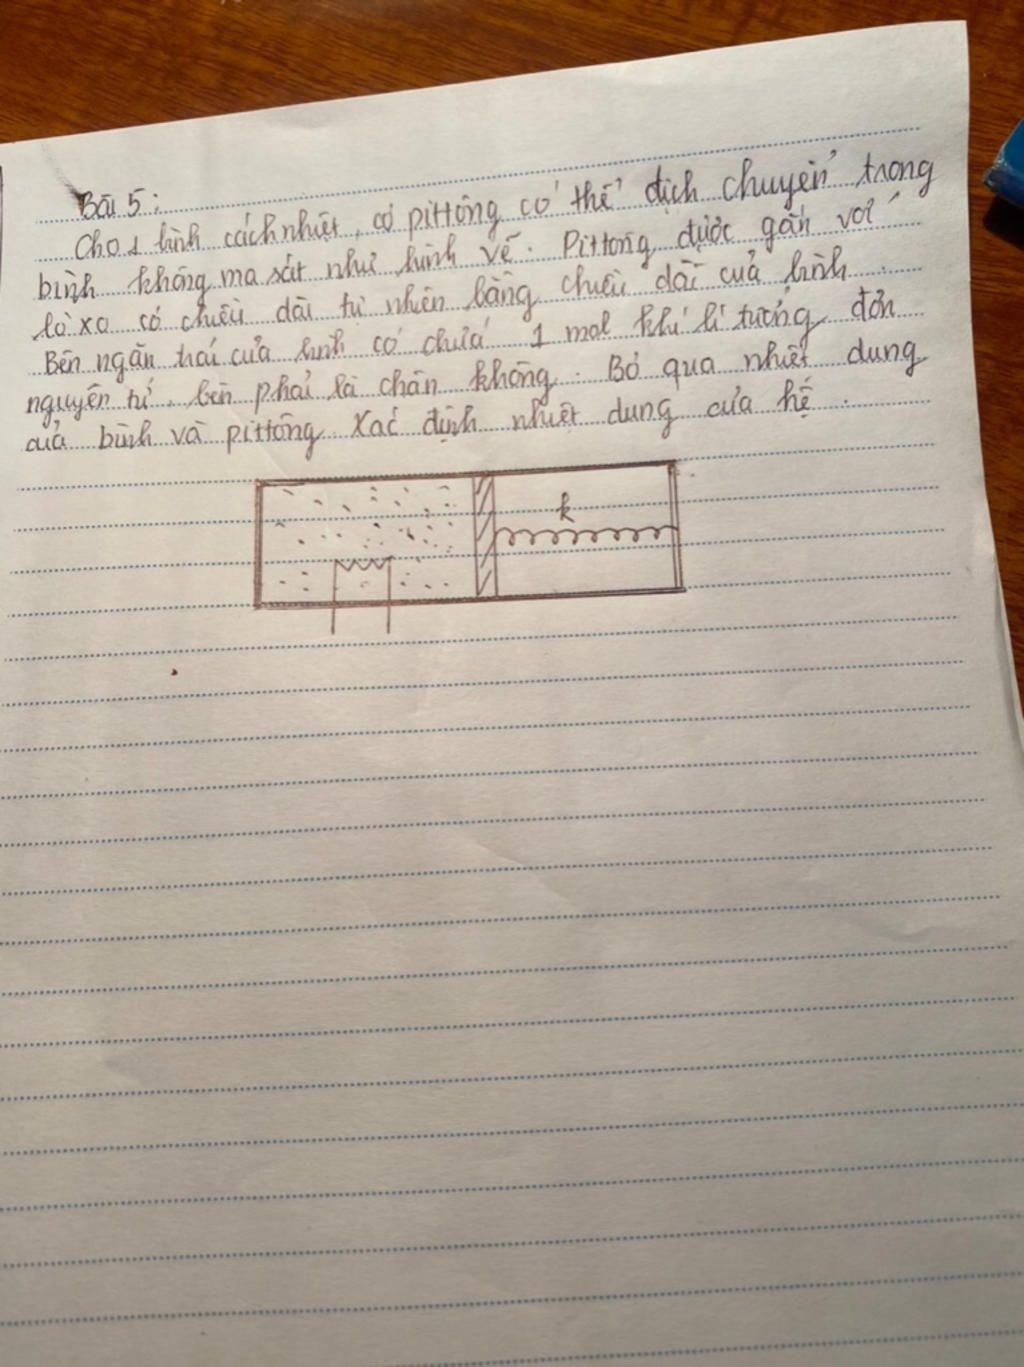 Bài 5:
Cho 1 bình cách nhiệt, có pittông có thể dịch chuyển trong
bình không ma sát như hình vẽ. Pittông được gắn với
lò xo có chiều dài tự nhiên bằng chiều dài của bình.
Bên ngăn trái của bình có chứa 1 mol khí lí tưởng đơn
nguyên tử, bên phải là chân không. Bỏ qua nhiệt dung
của bình và pittông. Xác định nhiệt dung của hệ.
k